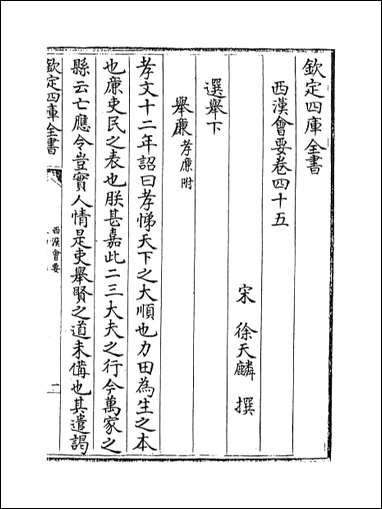 欽定四庫全書
西漢會要卷四十五
宋 徐天麟 撰
選舉下
舉廉孝廉附
孝文十二年詔曰孝悌天下之大順也力田為生之本
也廉吏民之表也朕甚嘉此二三大夫之行今萬家之
縣云亡應令豈實人情是吏舉賢之道未備也其遣謁
欽定四庫全書
西漢會要